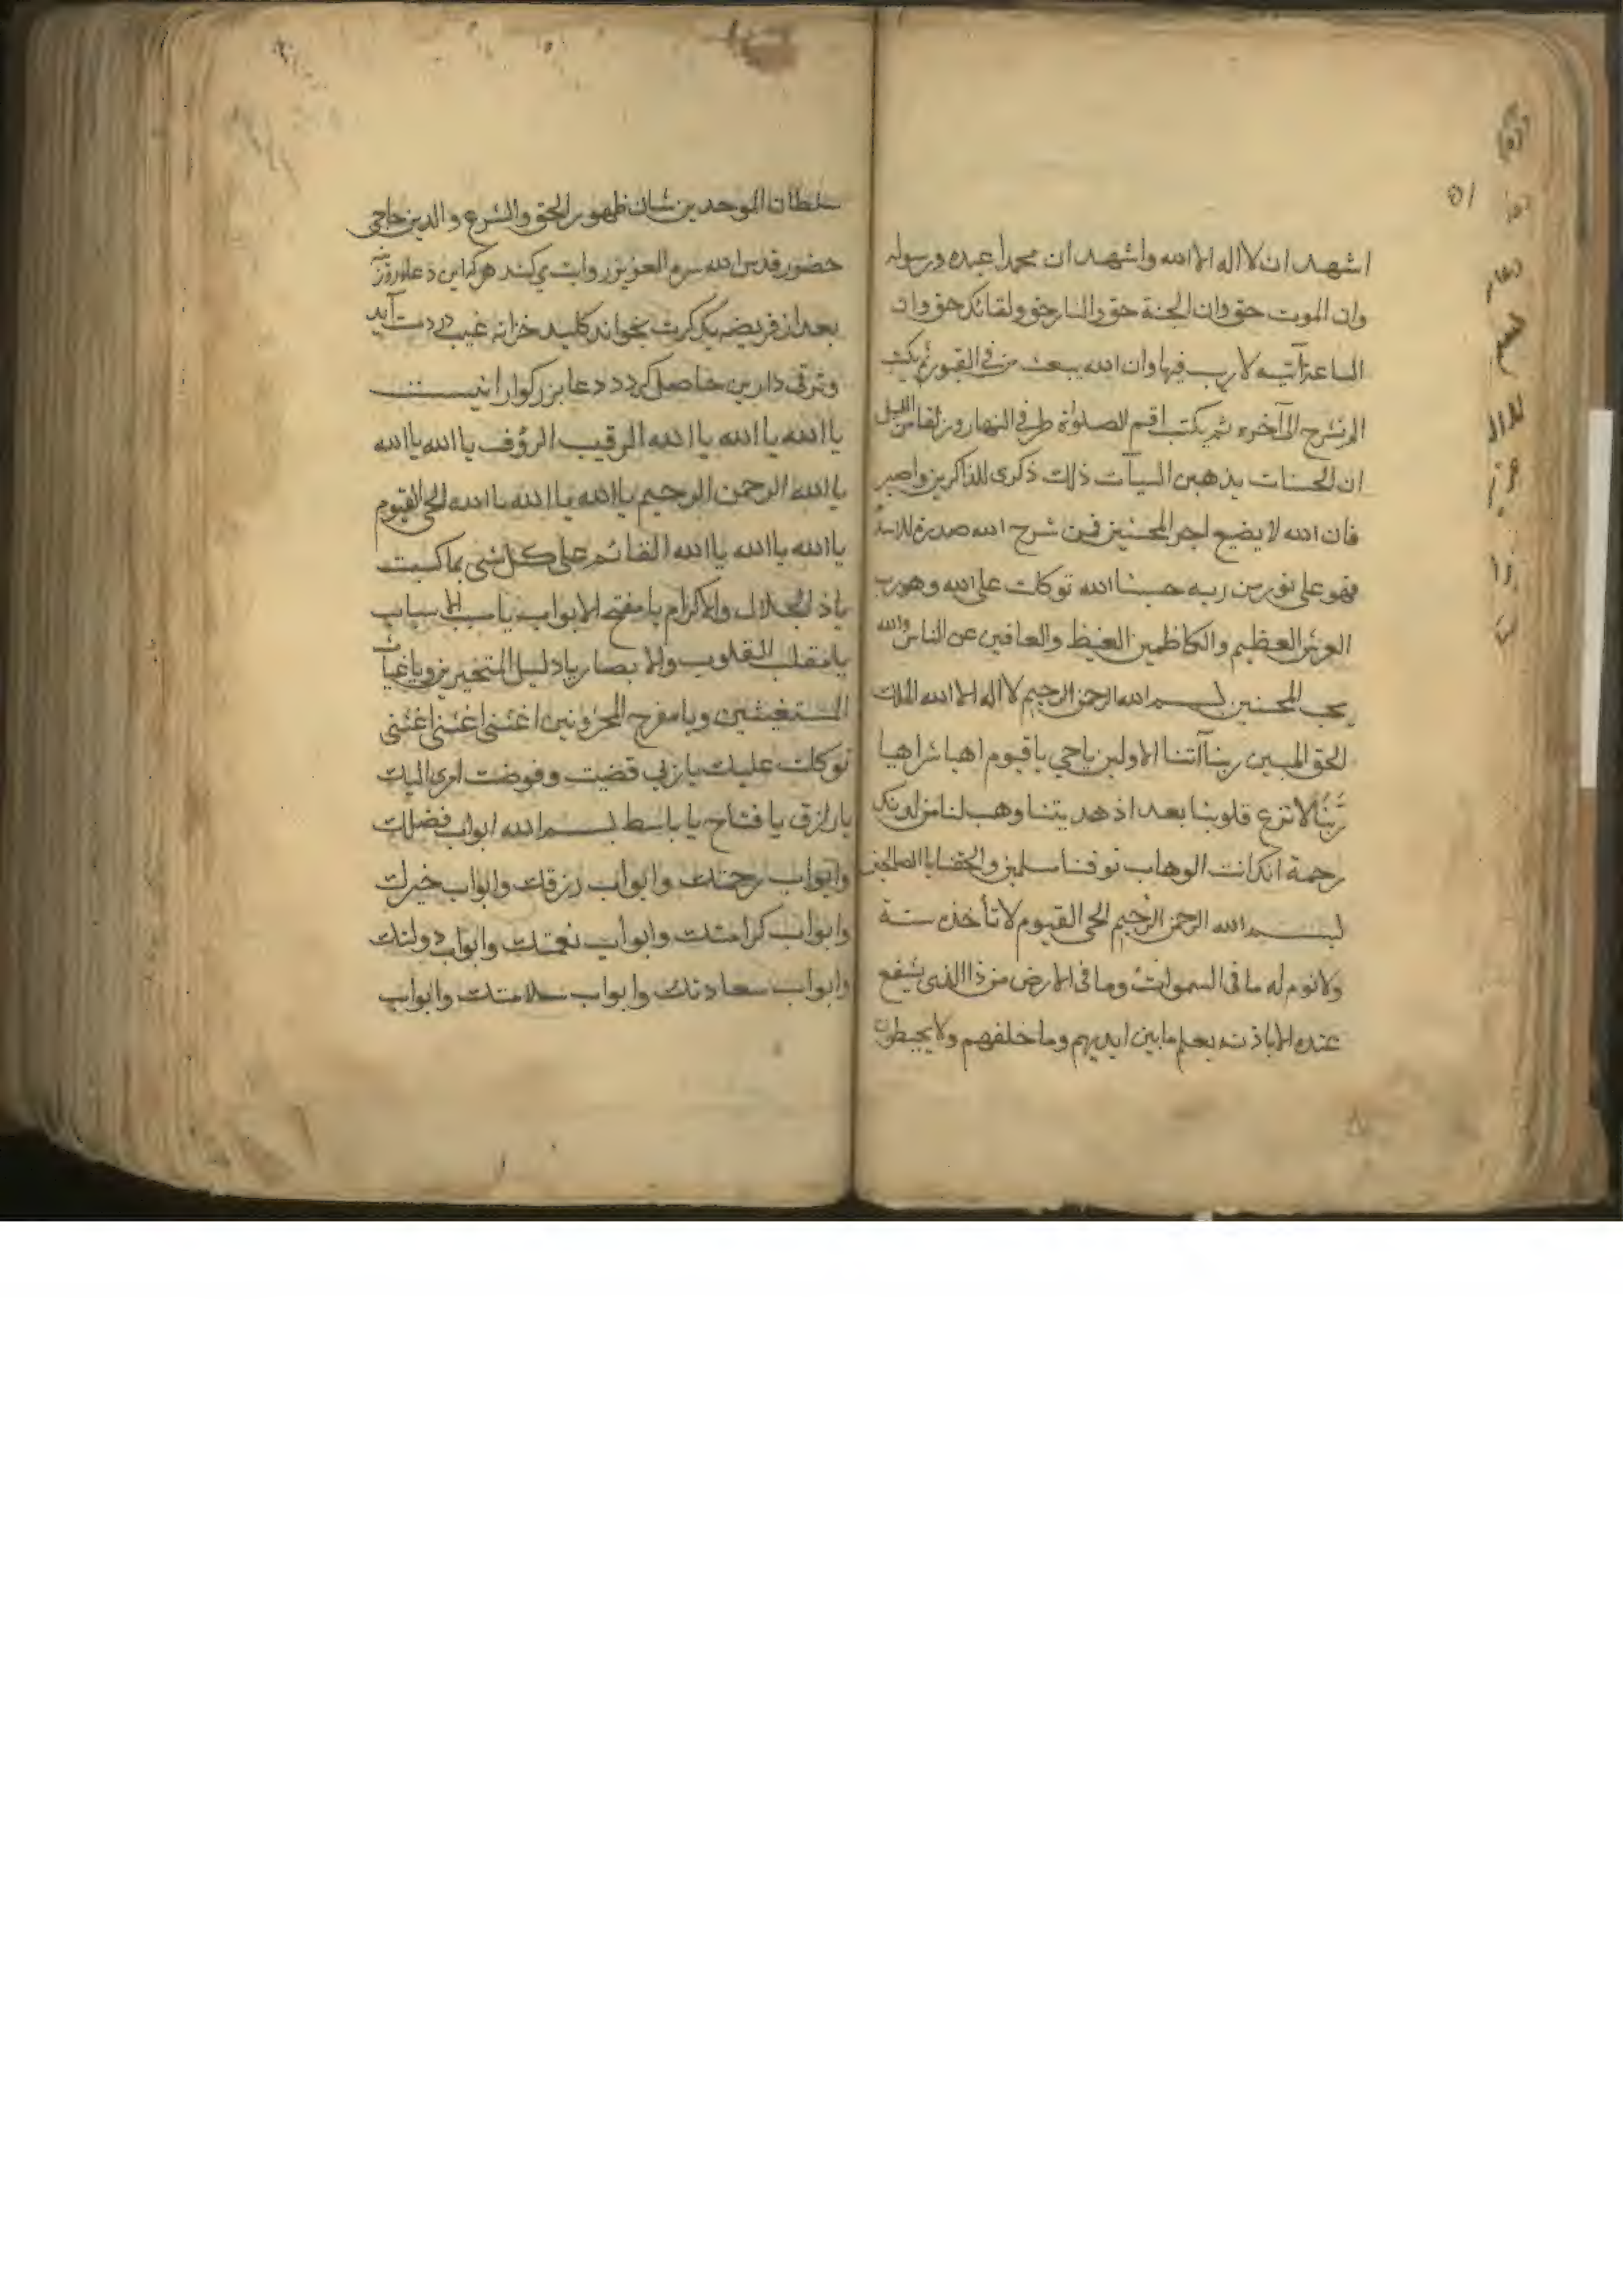 اشهد ان لا اله الا الله واشهد ان محمدا عبده ورسوله
وان الموت حق وان الجنة حق والنار حق ولقائك حق وان
الساعة آتيه لا ريب فيها وان الله يبعث من في القبور ثم يكتب
الم نشرح الى آخره ثم يكتب اقم الصلوة طرفي النهار وزلفا من الليل
ان الحسنات يذهبن السيآت ذلك ذكرى للذاكرين واصبر
فان الله لا يضيع اجر المحسنين فمن شرح الله صدره للاسلام
فهو على نور من ربه حسبنا الله توكلت على الله وهو رب
العرش العظيم والكاظمين الغيظ والعافين عن الناس والله
يحب المحسنين بسم الله الرحمن الرحيم لا اله الا الله الملك
الحق المبين ربنا آتنا الاولين يا حي يا قيوم اهيا شراهيا
ربنا لا تزغ قلوبنا بعد اذ هديتنا وهب لنا من لدنك
رحمة انك انت الوهاب توفنا مسلمين والحقنا بالصالحين
بسم الله الرحمن الرحيم الحى القيوم لا تأخذه سنة
ولا نوم له ما فى السموات وما فى الارض من ذا الذى يشفع
عنده الا باذنه يعلم ما بين ايديهم وما خلفهم ولا يحيطون
سلطان الموحدين شان ظهور الحق والشرع والدين حاجى
حضور قدس الله سره العزيز روايت مى كند هر كه اين دعا هر روز
بعد از فريضه يك كرت بخواند كليد خزانه غيب در دست آيد
وترقى دارين حاصل گردد دعا بزرگوار اينست
يا الله يا الله يا الله الرقيب الرؤف يا الله يا الله
يا الله الرحمن الرحيم يا الله يا الله يا الله الحى القيوم
يا الله يا الله يا الله القائم على كل شى بما كسبت
يا ذا الجلال والاكرام يا مفتح الابواب يا مسبب الاسباب
يا مقلب القلوب والابصار يا دليل المتحيرين ويا غياث
المستغيثين ويا مفرح المحزونين اغثنى اغثنى اغثنى
توكلت عليك يا ربى قضيت وفوضت امرى اليك
يا رزاق يا فتاح يا باسط بسم الله ابواب فضلك
وابواب رحمتك وابواب رزقك وابواب خيرك
وابواب كرامتك وابواب نعمتك وابواب دولتك
وابواب سعادتك وابواب سلامتك وابواب